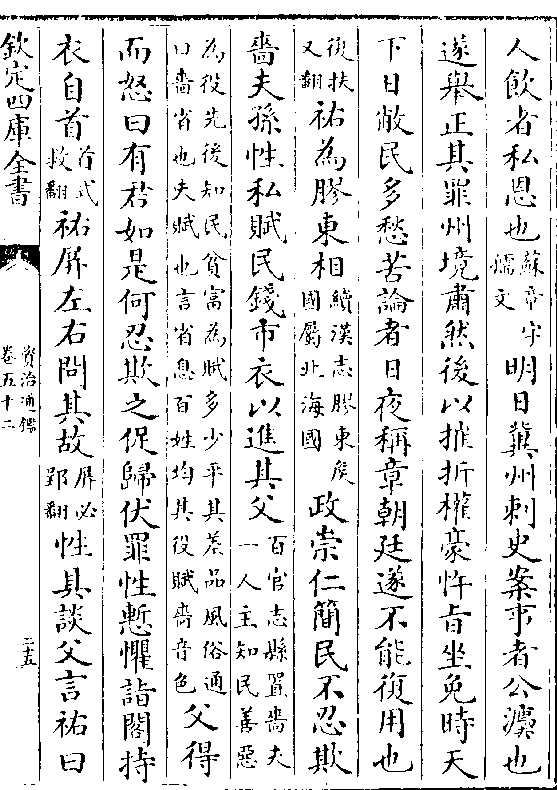 人飲者私恩也蘇章字孺文明日冀州刺史案事者公灋也
遂舉正其罪州境肅然後以摧折權豪忤旨坐免時天
下日敝民多愁苦論者日夜稱章朝廷遂不能復用也
復扶又翻祐為膠東相續漢志膠東侯國屬北海國政崇仁簡民不忍欺
嗇夫孫性私賦民錢市衣以進其父百官志縣置嗇夫一人主知民善惡
為役先後知民貧富為賦多少平其差品風俗通曰嗇省也夫賦也言省息百姓均其役賦嗇音色父得
而怒曰有君如是何忍欺之促歸伏罪性慙懼詣閤持
衣自首首式救翻祐屏左右問其故屏必郢翻性具談父言祐曰
欽定四庫全書
資治通鑑
卷五十二
二十五